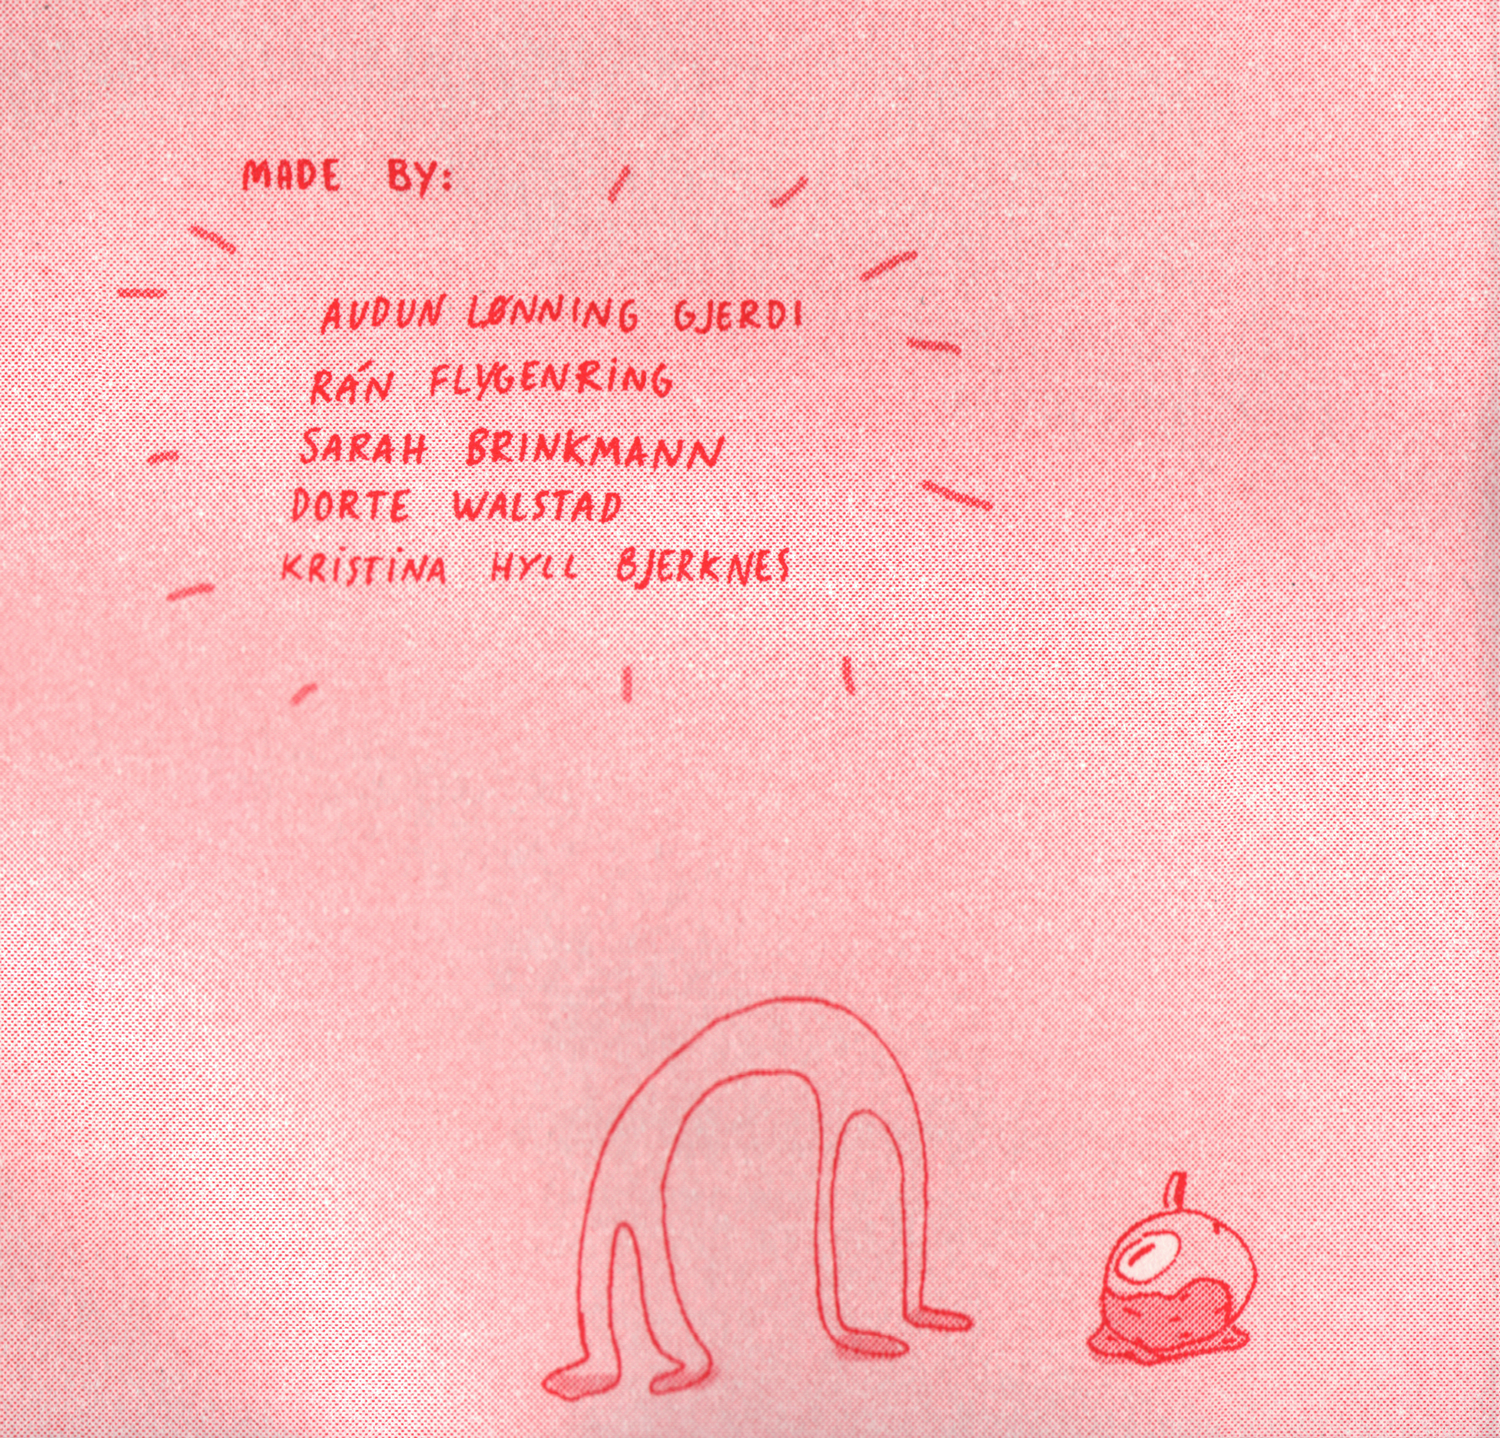 MADE BY:
AUDUN LØNNING GJERDI
RÁN FLYGENRING
SARAH BRINKMANN
DORTE WALSTAD
KRISTINA HYLL BJERKNES